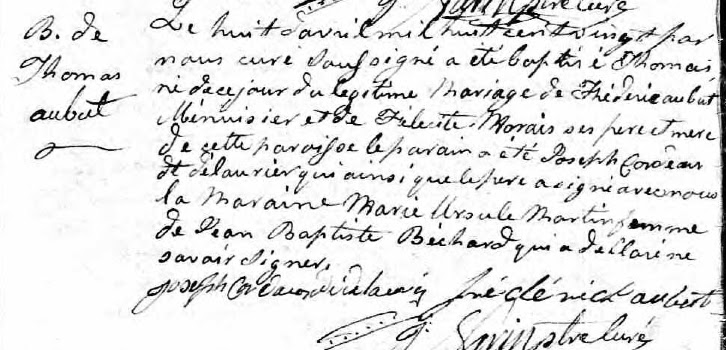 B. de
Thomas
aubut
Le huit d'avril mil huit cent vingt par
nous curé soussigné a été baptisé Thomas,
né de ce jour du legitime Mariage de Fréderic aubut
Ménuisier et de Félicité Morais ses pere et mere
de cette paroisse le parain a été Joseph Cordeau
dt delaurier qui ainsi que le pere a signé avec nous
la Maraine Marie Ursule Martin femme
de Jean Baptiste Béchard qui a declaré ne
savoir signer,
Joseph Cordeau frédérick aubut
ptre Curé